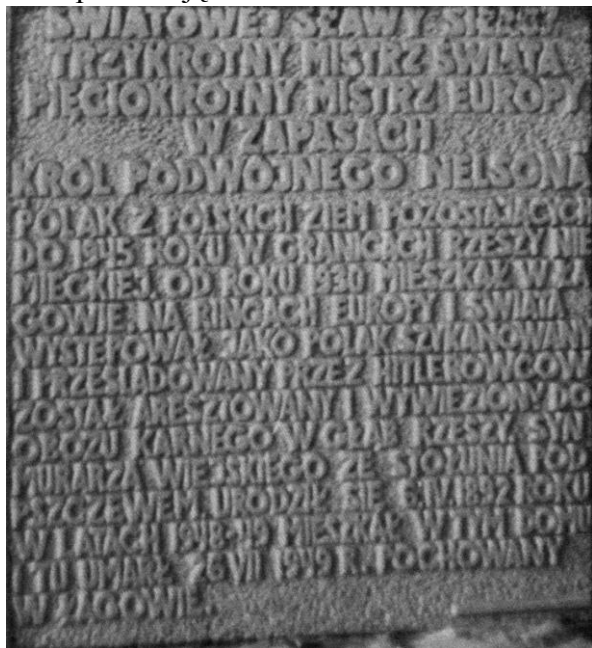 ŚWIATOWEJ SŁAWY
TRZYKROTNY MISTRZ ŚWIATA
PIĘCIOKROTNY MISTRZ EUROPY
W ZAPASACH
KRÓL PODWÓJNEGO NELSONA
POLAK Z POLSKICH ZIEM POZOSTAJĄCYCH
DO 1945 ROKU W GRANICACH RZESZY NIE
MIECKIEJ. OD ROKU 1930 MIESZKAŁ W ŁA
GOWIE. NA RINGACH EUROPY I ŚWIATA
WYSTĘPOWAŁ JAKO POLAK. SZYKANOWANY
I PRZEŚLADOWANY PRZEZ HITLEROWCÓW
ZOSTAŁ ARESZTOWANY I WYWIEZIONY DO
OBOZU KARNEGO W GŁĄB RZESZY. SYN
MURARZA WIEJSKIEGO ZE STOŁUNIA POD
PSZCZEWEM URODZIŁ SIĘ 6 IV 1892 ROKU
W LATACH 1948-49 MIESZKAŁ W TYM DOMU
I TU UMARŁ VII 1949 R. POCHOWANY
W ŁAGOWIE.